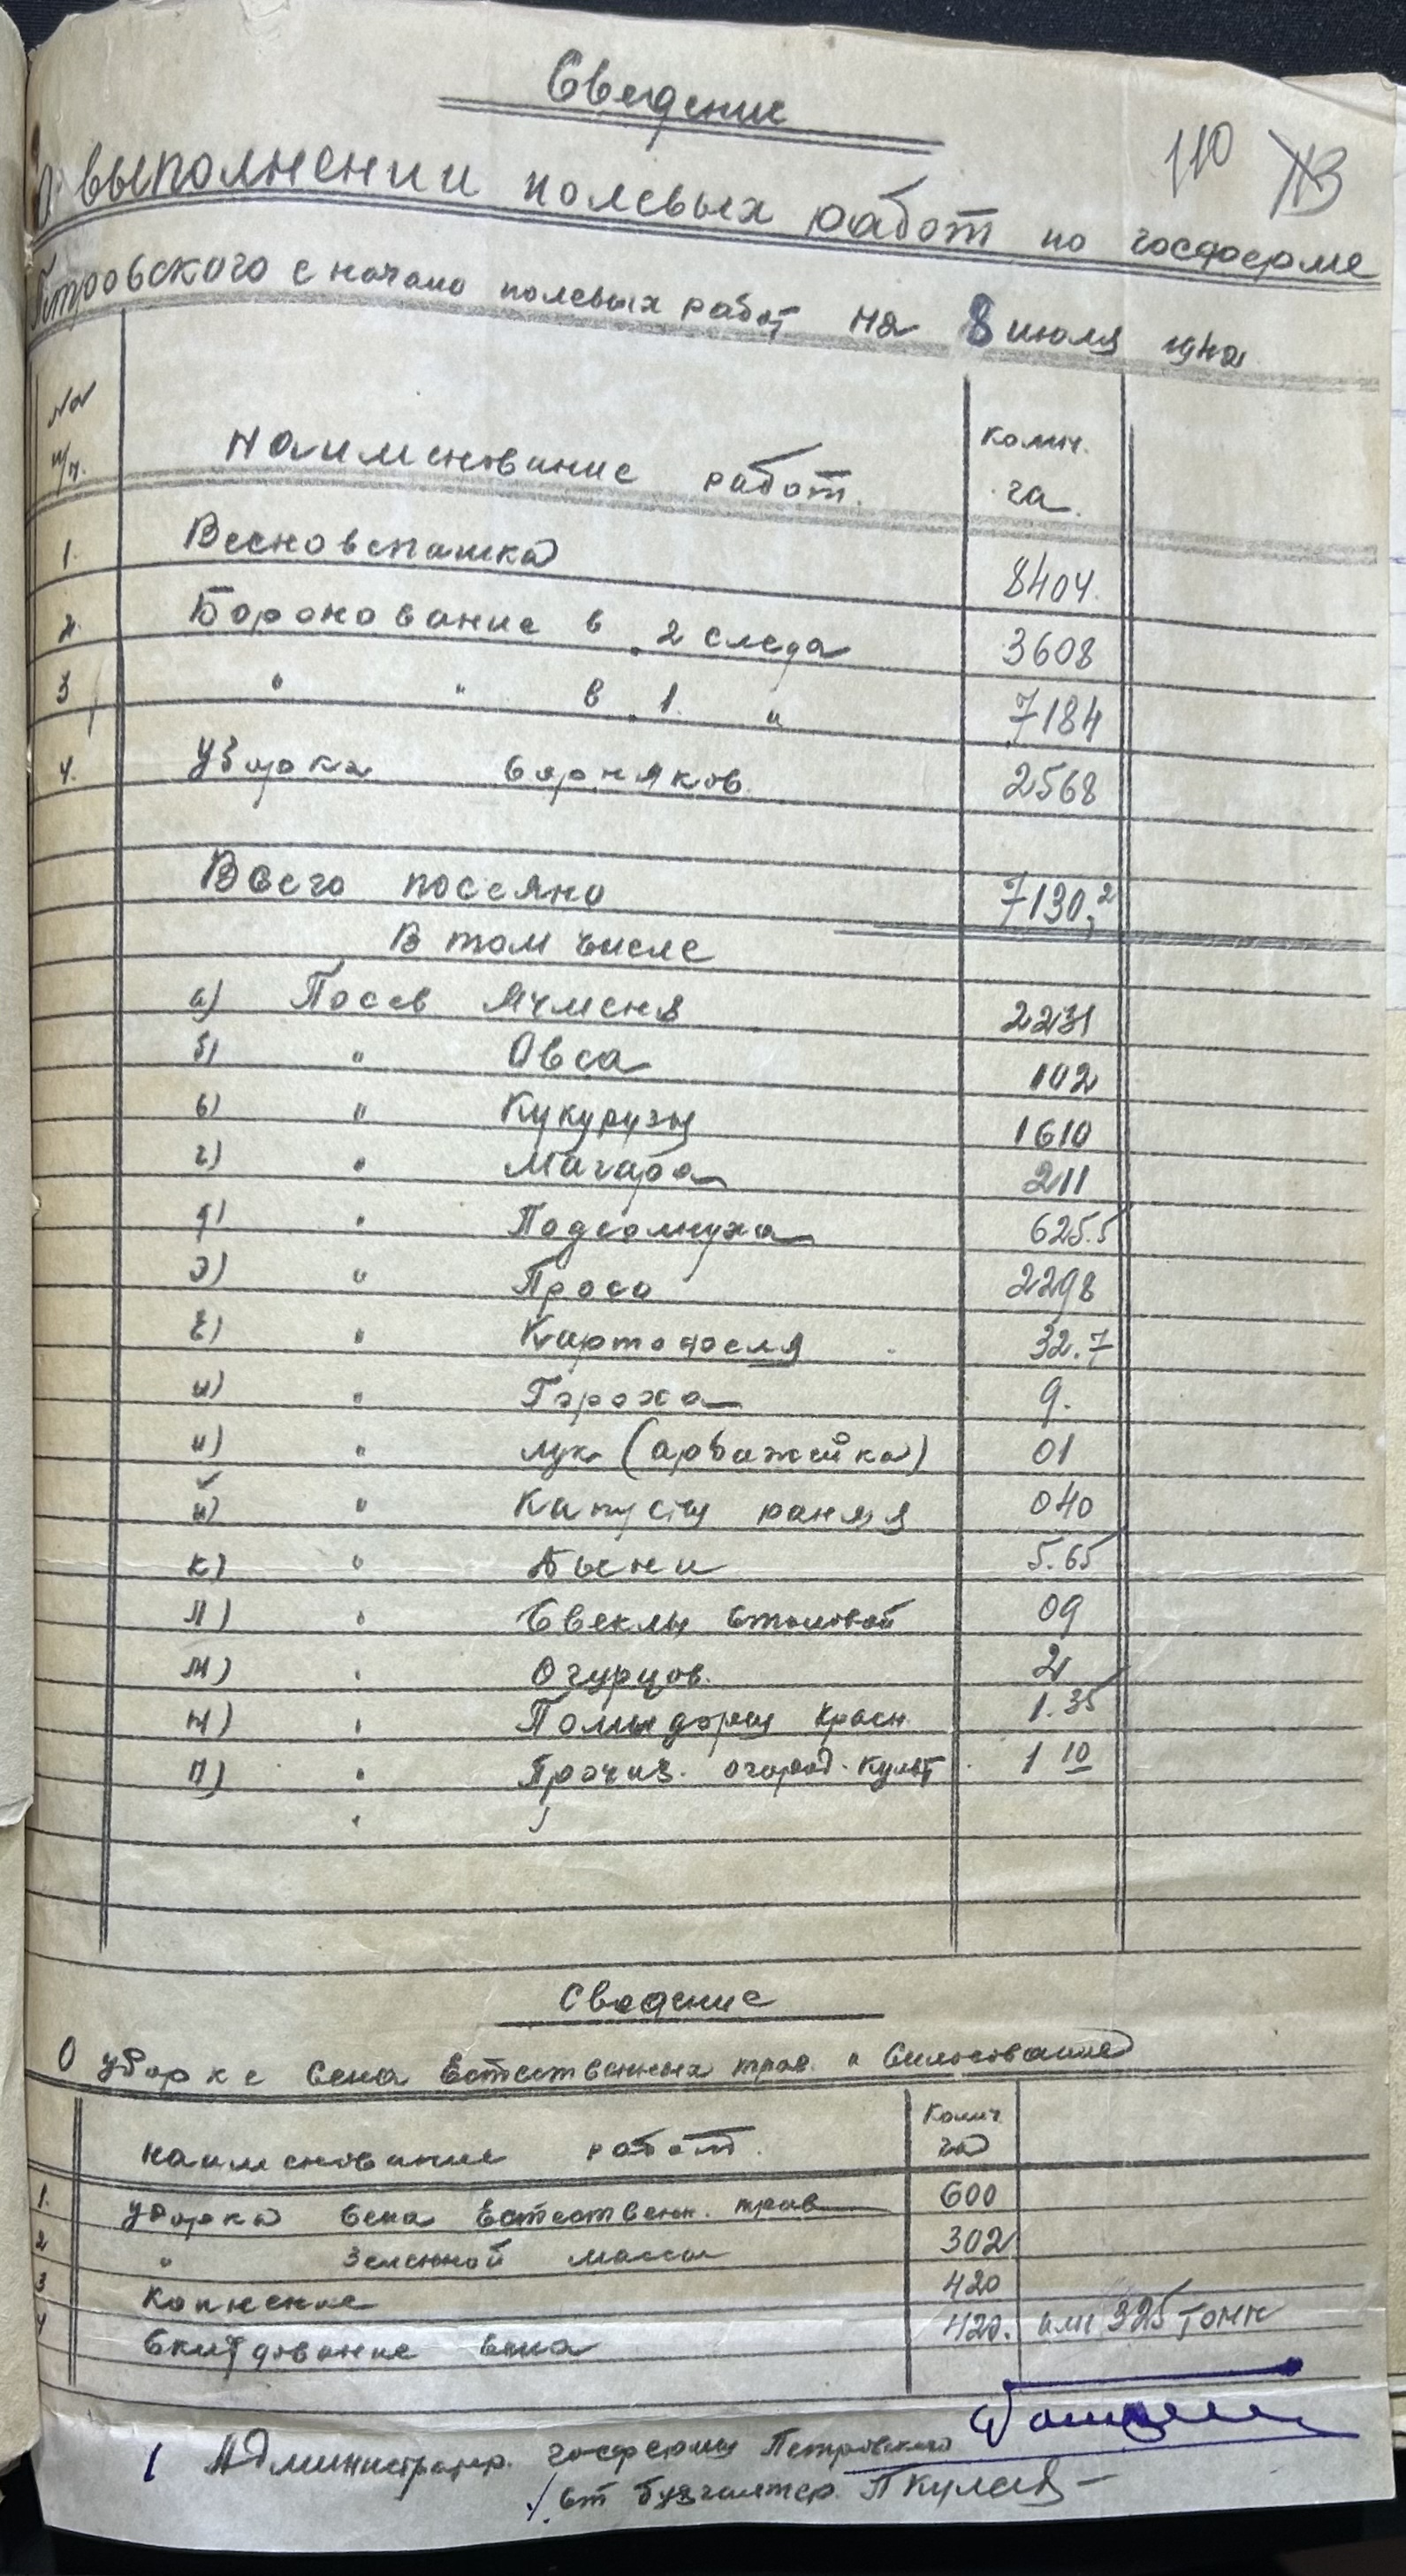 Сведение
110 113
О выполнении полевых работ по госферме
Петровского с начала полевых работ на 8 июля 1942
№ п/п. Наименование работ. колич. га.
1. Весновспашка 8404.
2. Боронование в 2 следа 3608
3 " " в 1 " 7184
4. Уборка сорняков 2568
Всего посеяно 7130,2
В том числе
а) Посев Ячменя 2231
б) " Овса 102
в) " Кукурузы 1610
г) " Магара 211
д) " Подсолнуха 625.5
э) " Просо 2298
е) " Картофеля 32.7
и) " Гороха 9.
и) " лук (арбажейка) 01
и) " Капусты раняя 040
к) " Дыни 5.65
л) " Свеклы столовой 09
м) " Огурцов. 21
н) " Помидоры красн. 1.35
п) " Прочих. огород. культ. 1 10
"
Сведение
О уборке Сена Естественных трав. и Силосование
наименование работ. Колич га
1. уборка Сена Естественн. трав 600
2 " Зеленной массы 302
3 Копнение 420
4 Скирдование сена 420. или 325 тонн
Администратор. госфермы Петровского
ст бухгалтер.